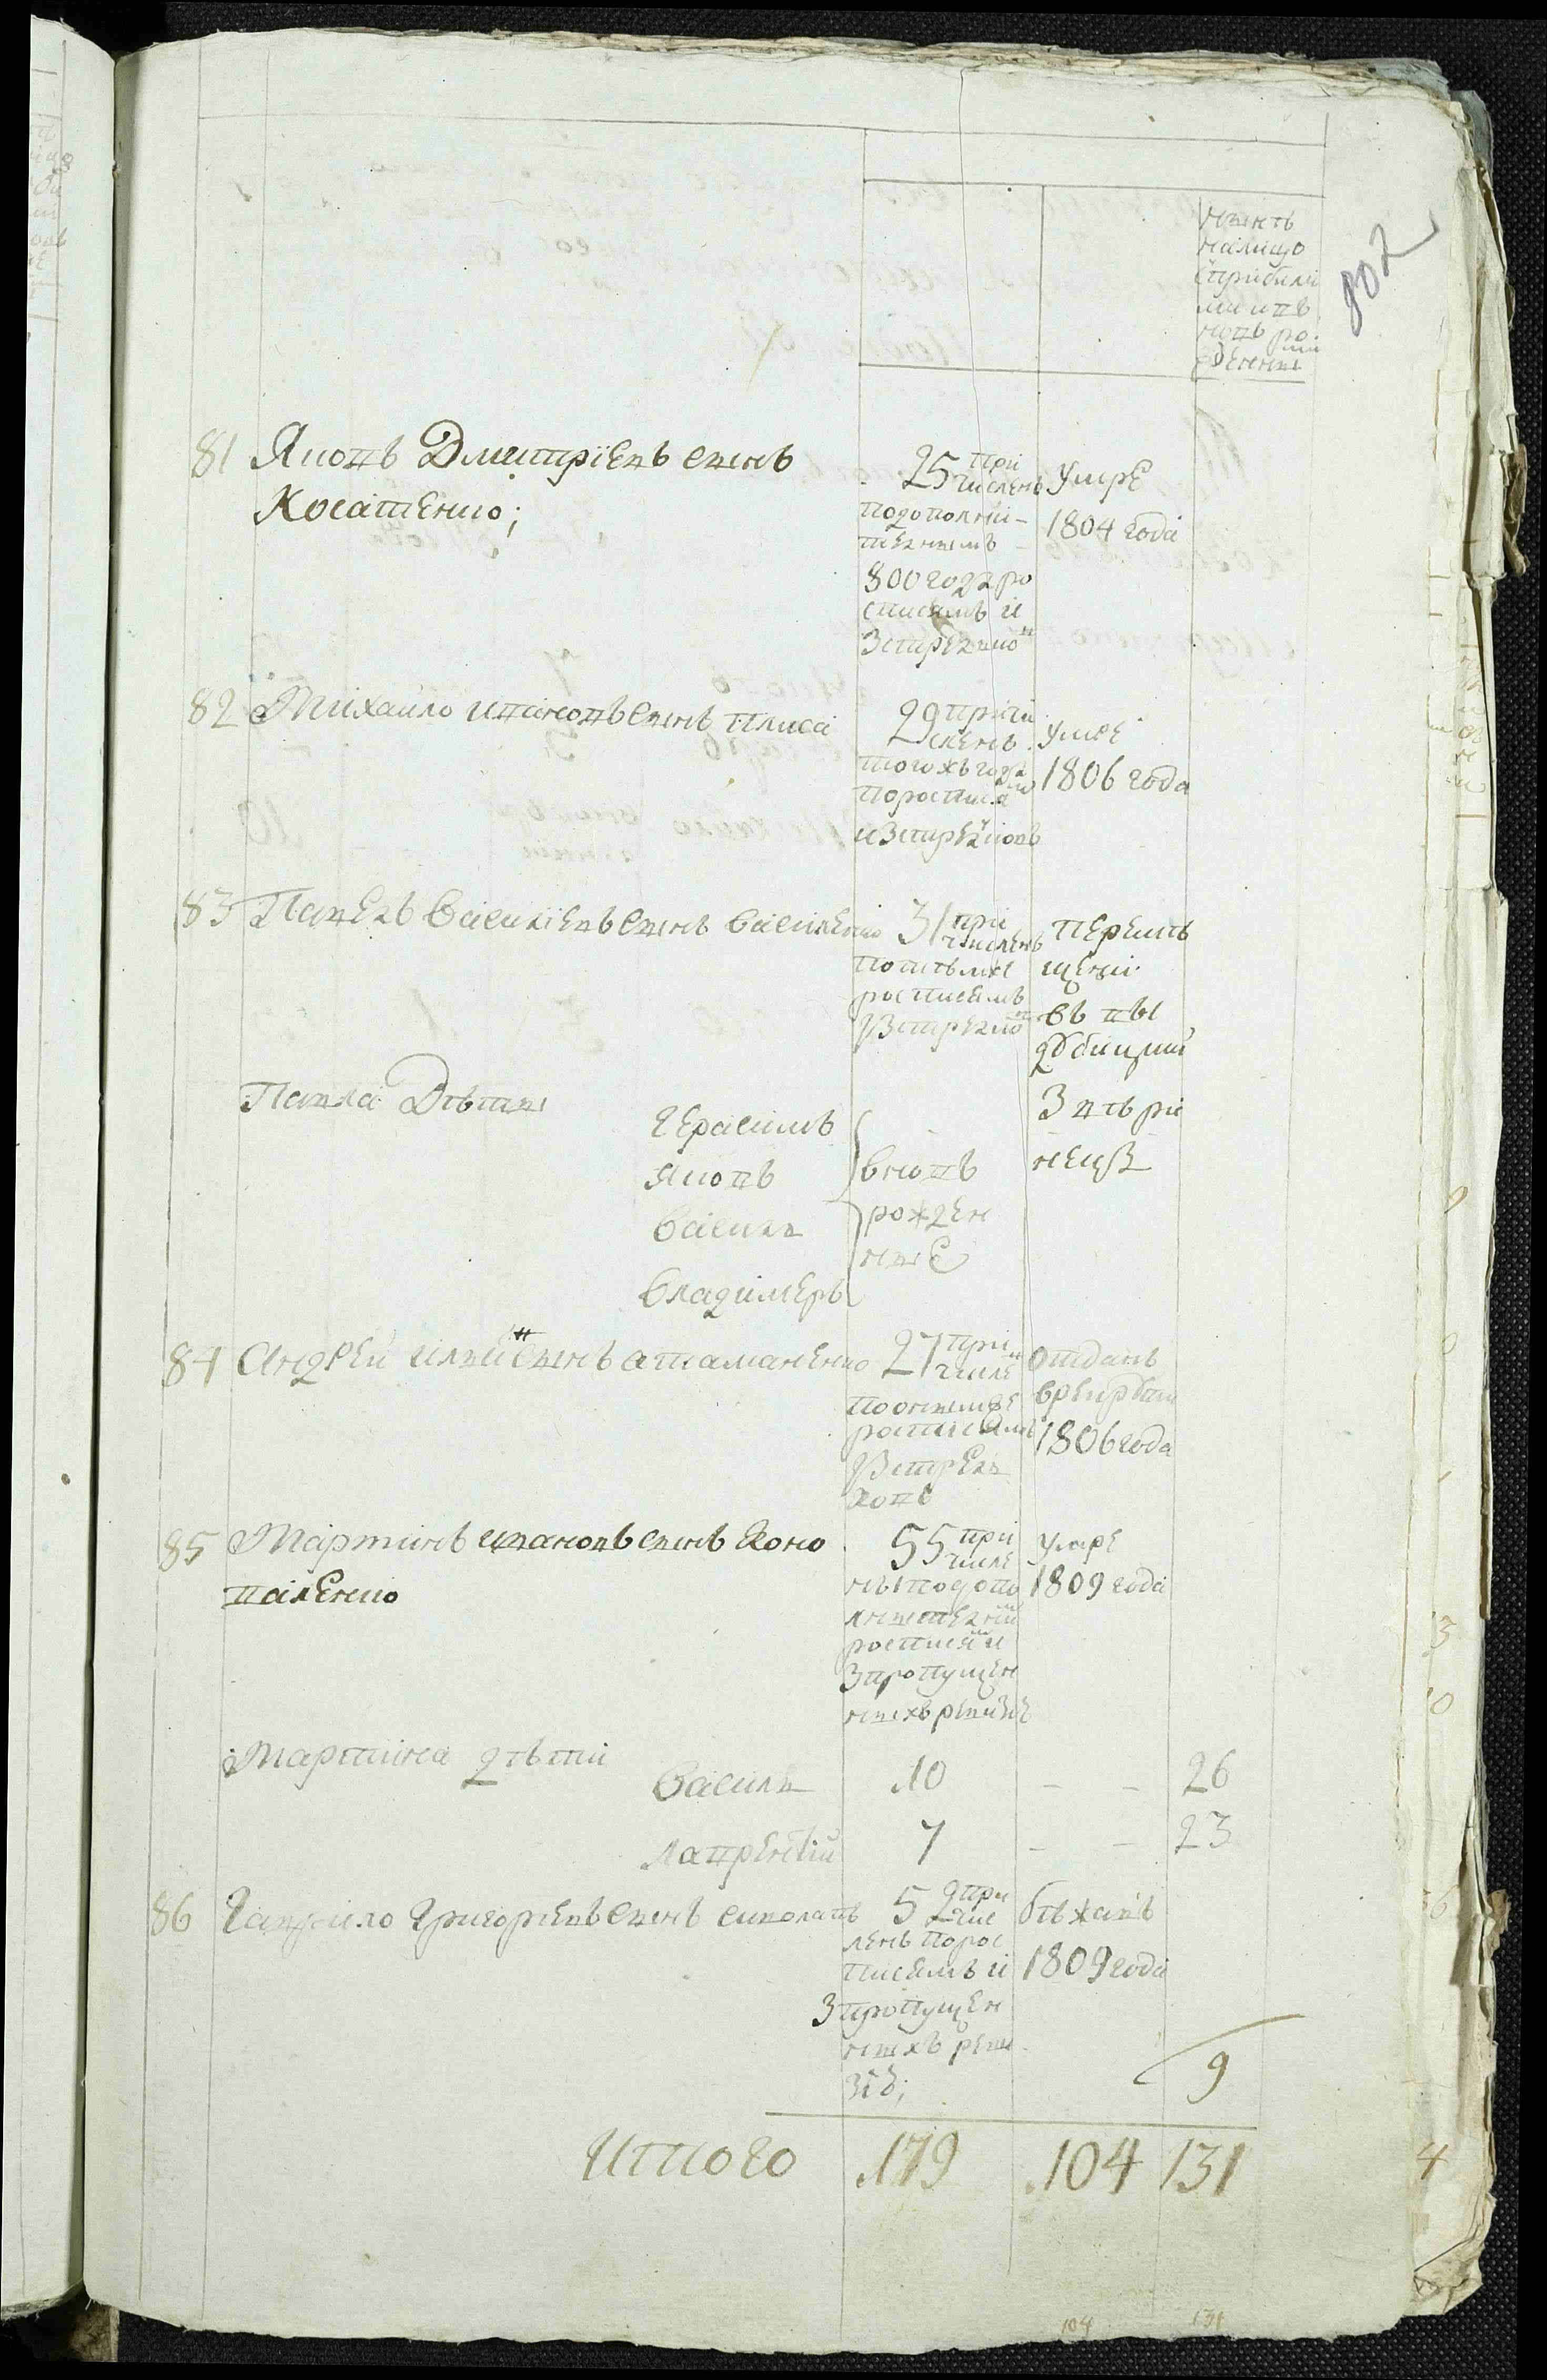 802
нынѣ
налицо
съприбили
ми и въ
новь ро
жденными
81 Яковъ Дмитріевъ сынъ
Косатенко;
25 при
численъ
подополни-
тельнымъ
800 года ро
списямъ и
з стрелков
умре
1804 года
82 Михайло ивановъ сынъ плиса
29 причи
сленъ
того жъ года
по росписям
и з стрелковъ
умре
1806 года
83 Павелъ васильевъ сынъ василенко
31 при
численъ
по тѣмже
росписямъ
из стрелков
перемѣ
щени
въ
3
Павла Дѣти
Герасимъ
Яковъ
василь
владимеръ
вновь
рожден
ные
84 Андрей ильин сынъ атаманенко
27 при
числе
по онымже
росписямъ
из стрел
ковъ
отданъ
в рекруты
1806 года
85 Мартинъ ивановъ сынъ коно
паленко
55 при
числе
нъ по допо
лнытелним
росписям и
з пропущен
ныхъ ревизіе
умре
1809 года
Мартина дѣти
василь 10 - - 26
лаврентій 7 - - 23
86 Гаврило Григорьевъ сынъ
52 при
чис
ленъ порос
писямъ и
з пропущен
ныхъ реви
зіе;
бѣжалъ
1809 года
9
Итого 179 104 131
104 131